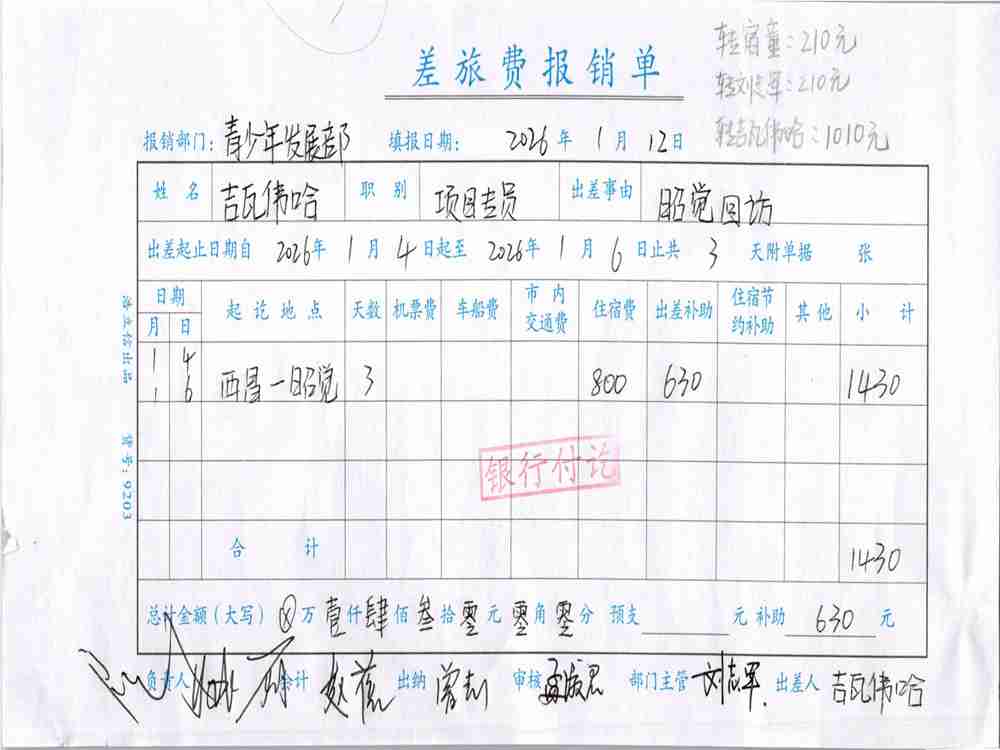 转宿童：210元
差旅费报销单
转刘志军：210元
转吉瓦伟哈：1010元
报销部门：青少年发展部 填报日期： 2026年 1月 12日
姓名 吉瓦伟哈 职别 项目专员 出差事由 昭觉回访
出差起止日期自 2026年 1月 4日起至 2026年 1月 6日止共 3 天附单据 张
日期 起讫地点 天数 机票费 车船费 市内交通费 住宿费 出差补助 住宿节约补助 其他 小计
月 日
1 4
1 6 西昌—昭觉 3 800 630 1430
银行付讫
货号：9203
合计 1430
总计金额（大写） ⊗万 壹仟 肆佰 叁拾 零元 零角 零分 预支 元 补助 630 元
负责人 会计 出纳 审核 部门主管 刘志军 出差人 吉瓦伟哈